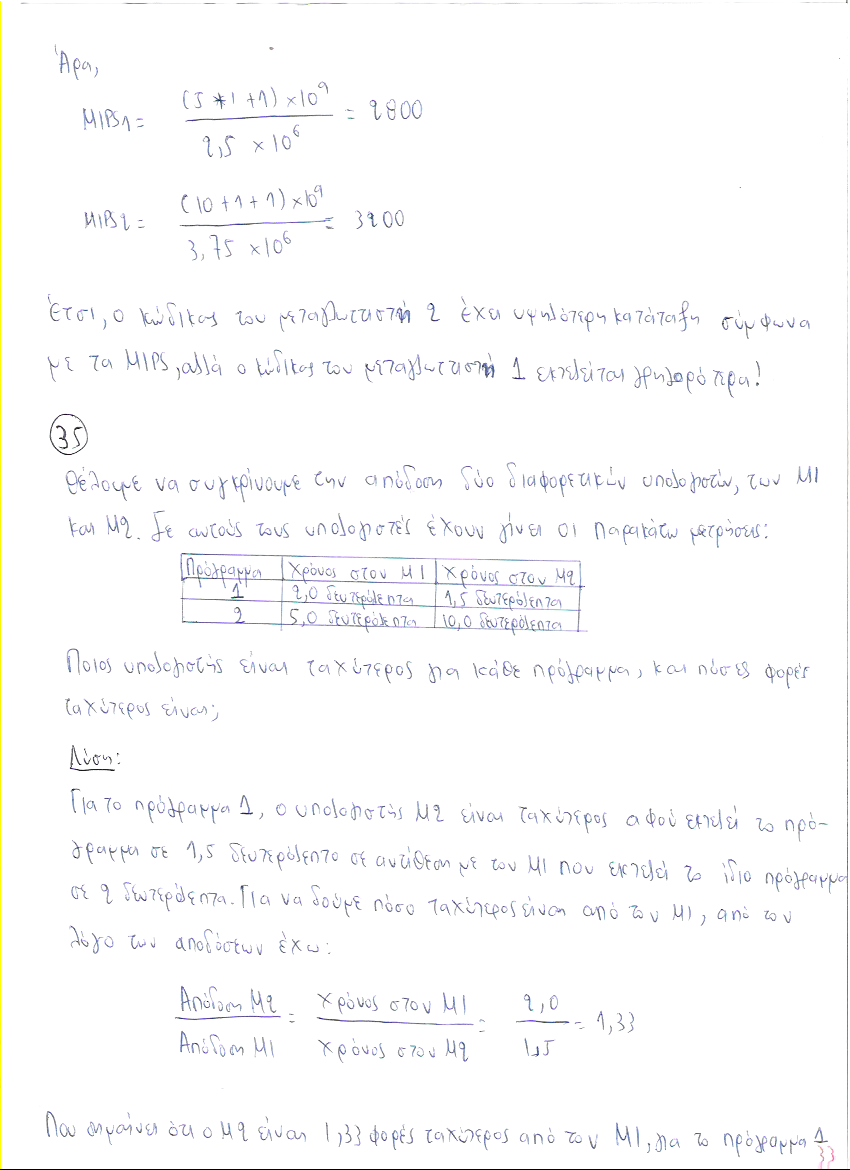 Άρα,
MIPS1 = (5 * 1 + 1) × 10^9 / 2,5 × 10^6 = 2800
MIPS2 = (10 + 1 + 1) × 10^9 / 3,75 × 10^6 = 3200
Έτσι, ο κώδικας του μεταγλωττιστή 2 έχει υψηλότερη κατάταξη σύμφωνα
με τα MIPS, αλλά ο κώδικας του μεταγλωττιστή 1 εκτελείται γρηγορότερα!
35
Θέλουμε να συγκρίνουμε την απόδοση δύο διαφορετικών υπολογιστών, των M1
και M2. Σε αυτούς τους υπολογιστές έχουν γίνει οι παρακάτω μετρήσεις:
Πρόγραμμα Χρόνος στον M1 Χρόνος στον M2
1 2,0 δευτερόλεπτα 1,5 δευτερόλεπτα
2 5,0 δευτερόλεπτα 10,0 δευτερόλεπτα
Ποιος υπολογιστής είναι ταχύτερος για κάθε πρόγραμμα, και πόσες φορές
ταχύτερος είναι;
Λύση:
Για το πρόγραμμα 1, ο υπολογιστής M2 είναι ταχύτερος αφού εκτελεί το πρό-
γραμμα σε 1,5 δευτερόλεπτο σε αντίθεση με τον M1 που εκτελεί το ίδιο πρόγραμμα
σε 2 δευτερόλεπτα. Για να δούμε πόσο ταχύτερος είναι από τον M1, από τον
λόγο των αποδόσεων έχω:
Απόδοση M2 / Απόδοση M1 = Χρόνος στον M1 / Χρόνος στον M2 = 2,0 / 1,5 = 1,33
Που σημαίνει ότι ο M2 είναι 1,33 φορές ταχύτερος από τον M1, για το πρόγραμμα 1
33